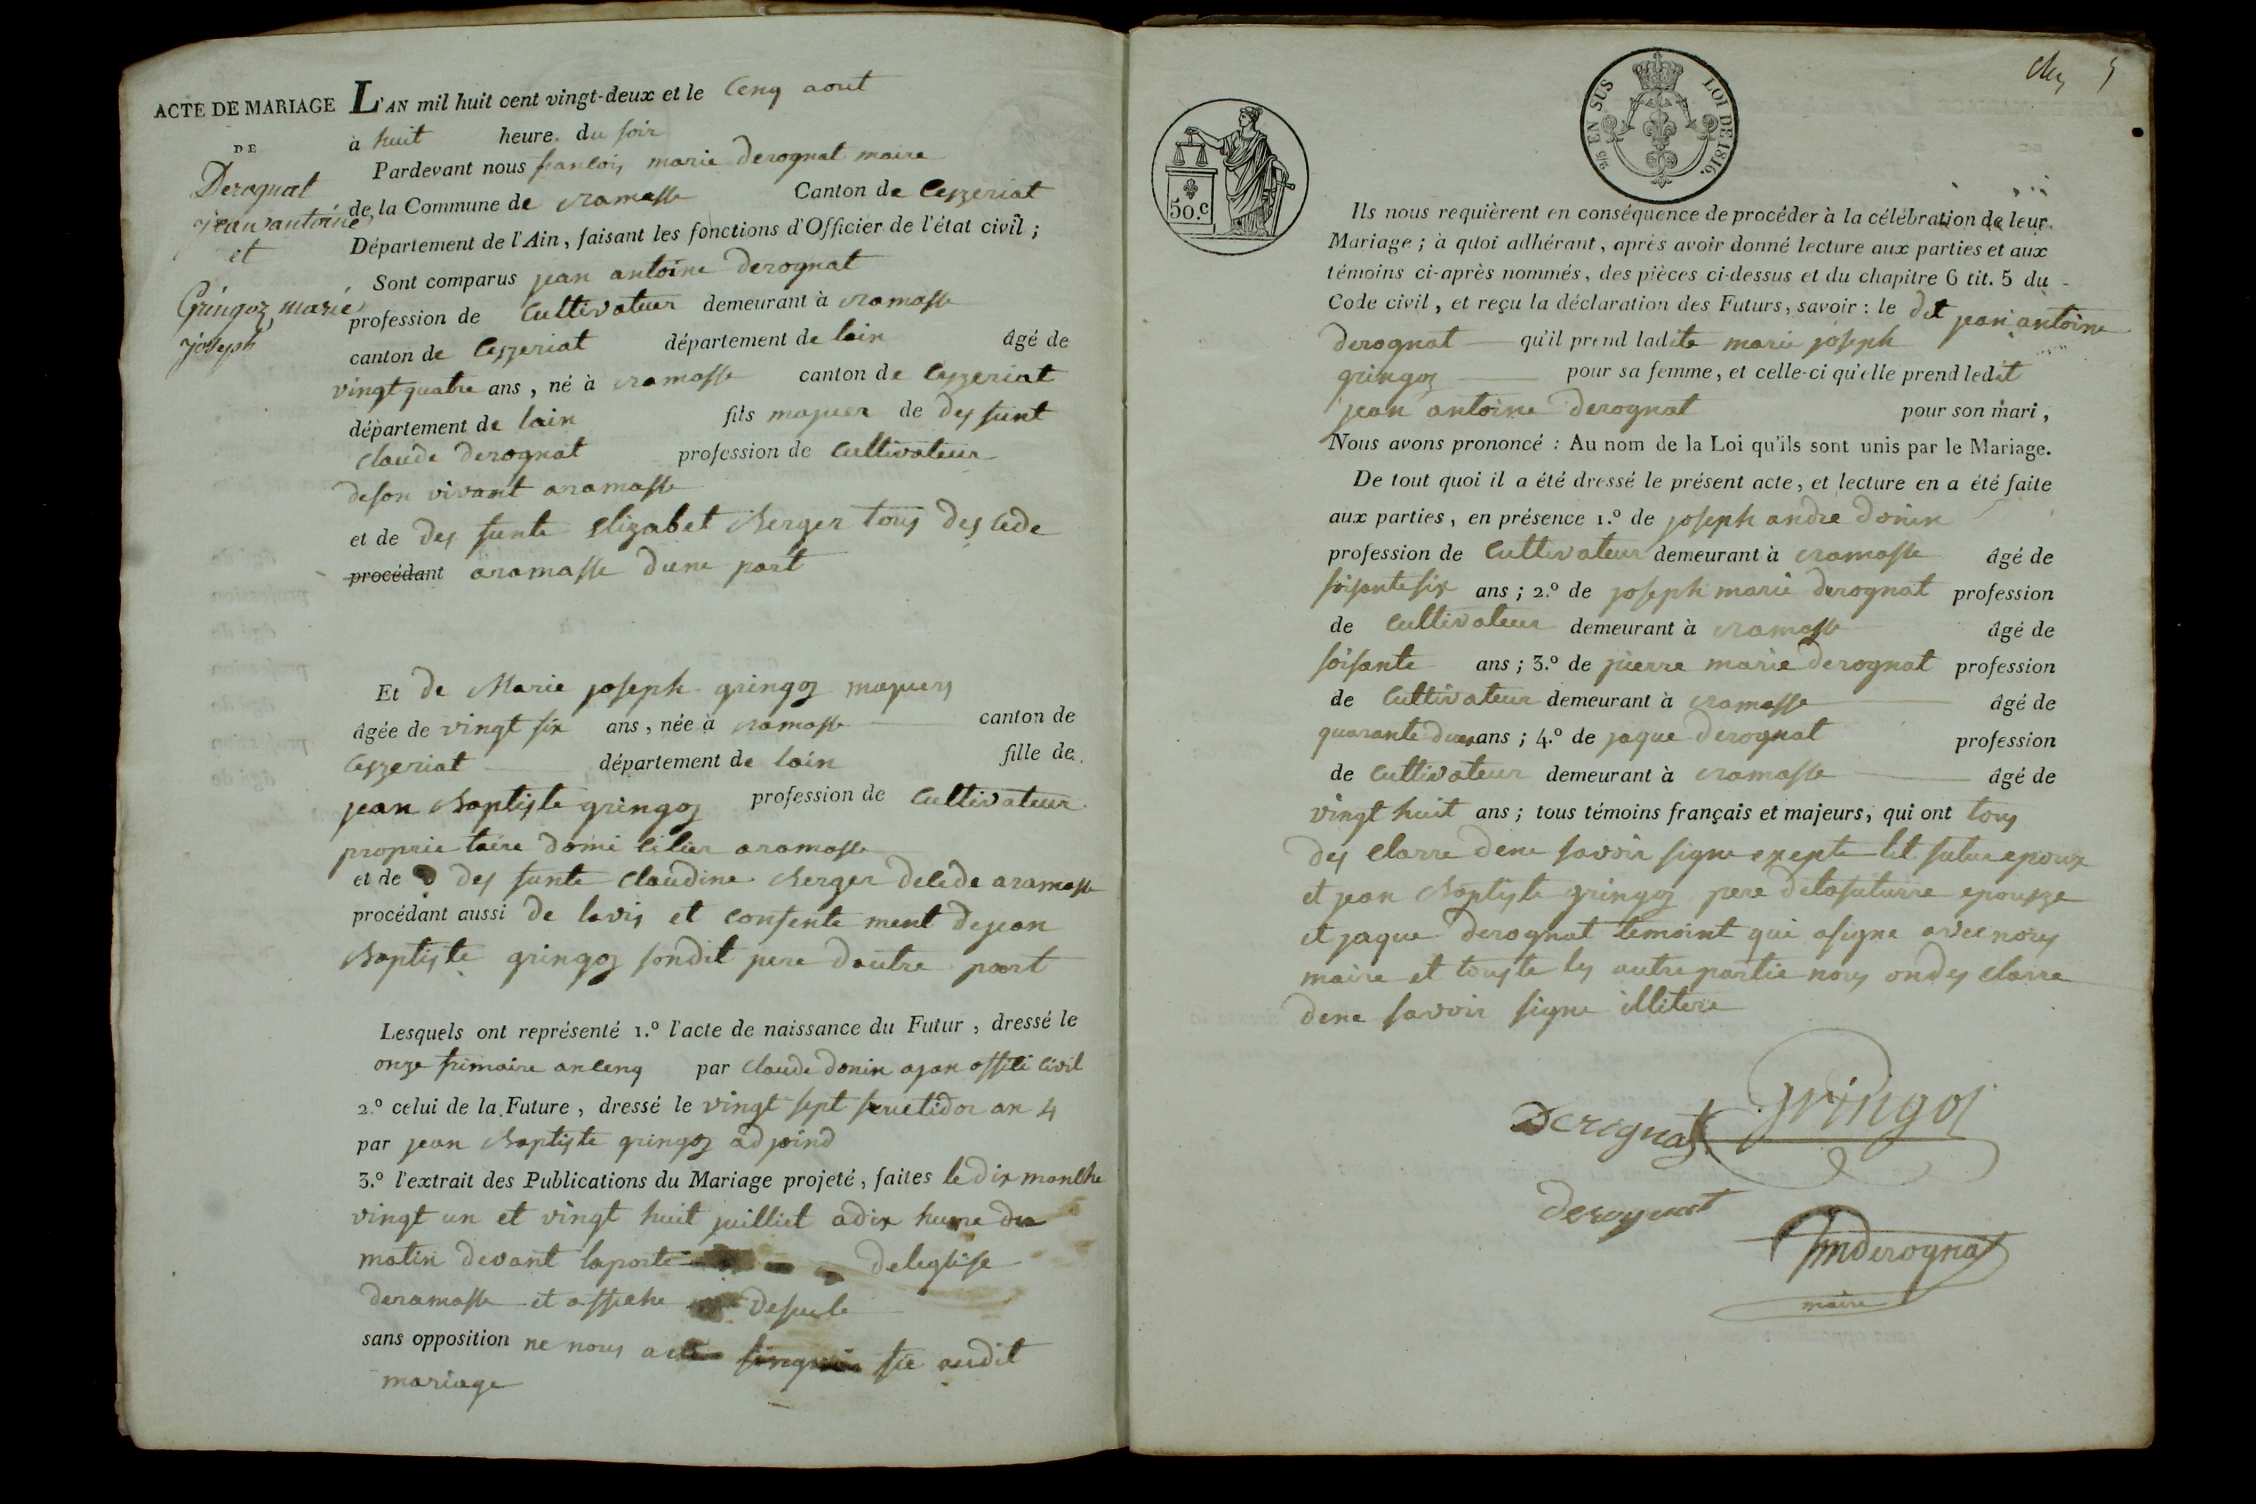 ACTE DE MARIAGE
DE
Derognat
jean antoine
et
Gringoz marie
joseph
L'AN mil huit cent vingt-deux et le cenq aout
à huit heure du soir
Pardevant nous francois marie derognat maire
de la Commune de ramasse Canton de Ceyzeriat
Département de l'Ain, faisant les fonctions d'Officier de l'état civil ;
Sont comparus jean antoine derognat
profession de Cultivateur demeurant à ramasse
canton de Ceyzeriat département de lain âgé de
vingt quatre ans, né à ramasse canton de Ceyzeriat
département de lain fils majuer de des funt
claude derognat profession de Cultivateur
deson vivant aramasse
et de des funte Elizabet Berger tous des cede
procédant aramasse dune part
Et de Marie joseph gringoz majuers
âgée de vingt six ans, née à ramasse canton de
Ceyzeriat département de lain fille de
jean Baptiste gringoz profession de Cultivateur
proprietaire domi cilier aramasse
et de des funte claudine Berger delede aramasse
procédant aussi de lavis et consente ment dejean
Baptiste gringoz sondit pere dautre part
Lesquels ont représenté 1.º l'acte de naissance du Futur, dressé le
onze frimaire an cenq par claude donin ajan offici civil
2.º celui de la Future, dressé le vingt sept fructidor an 4
par jean Baptiste gringoz adjoind
3.º l'extrait des Publications du Mariage projeté, faites le dix manche
vingt un et vingt huit juilliet a dix hure du
matin devant laporte deleglise
deramasse et affiche
sans opposition ne nous audit
mariage
50 C
5/10 EN SUS LOI DE 1816.
5
Ils nous requièrent en conséquence de procéder à la célébration de leur
Mariage ; à quoi adhérant, après avoir donné lecture aux parties et aux
témoins ci-après nommés, des pièces ci-dessus et du chapitre 6 tit. 5 du
Code civil, et reçu la déclaration des Futurs, savoir : le dit jean antoine
derognat qu'il prend ladite marie joseph
gringoz pour sa femme, et celle-ci qu'elle prend ledit
jean antoine derognat pour son mari,
Nous avons prononcé : Au nom de la Loi qu'ils sont unis par le Mariage.
De tout quoi il a été dressé le présent acte, et lecture en a été faite
aux parties, en présence 1.º de joseph andre donin
profession de Cultivateur demeurant à ramasse âgé de
soisante six ans ; 2.º de joseph marie derognat profession
de Cultivateur demeurant à ramasse âgé de
soisante ans ; 3.º de pierre marie derognat profession
de Cultivateur demeurant à ramasse âgé de
quarante deux ans ; 4.º de jaque derognat profession
de Cultivateur demeurant à ramasse âgé de
vingt huit ans ; tous témoins français et majeurs, qui ont tous
des clarre dene savoir signe exepte let futur epoux
et jean Baptiste gringoz pere delafuturre epousze
et jaque derognat temoint qui asigne avec nous
maire et touste les autre partie nous on des clarre
dene savoir signe illitere
Derognat gringoz
derognat
fmderognat
maire